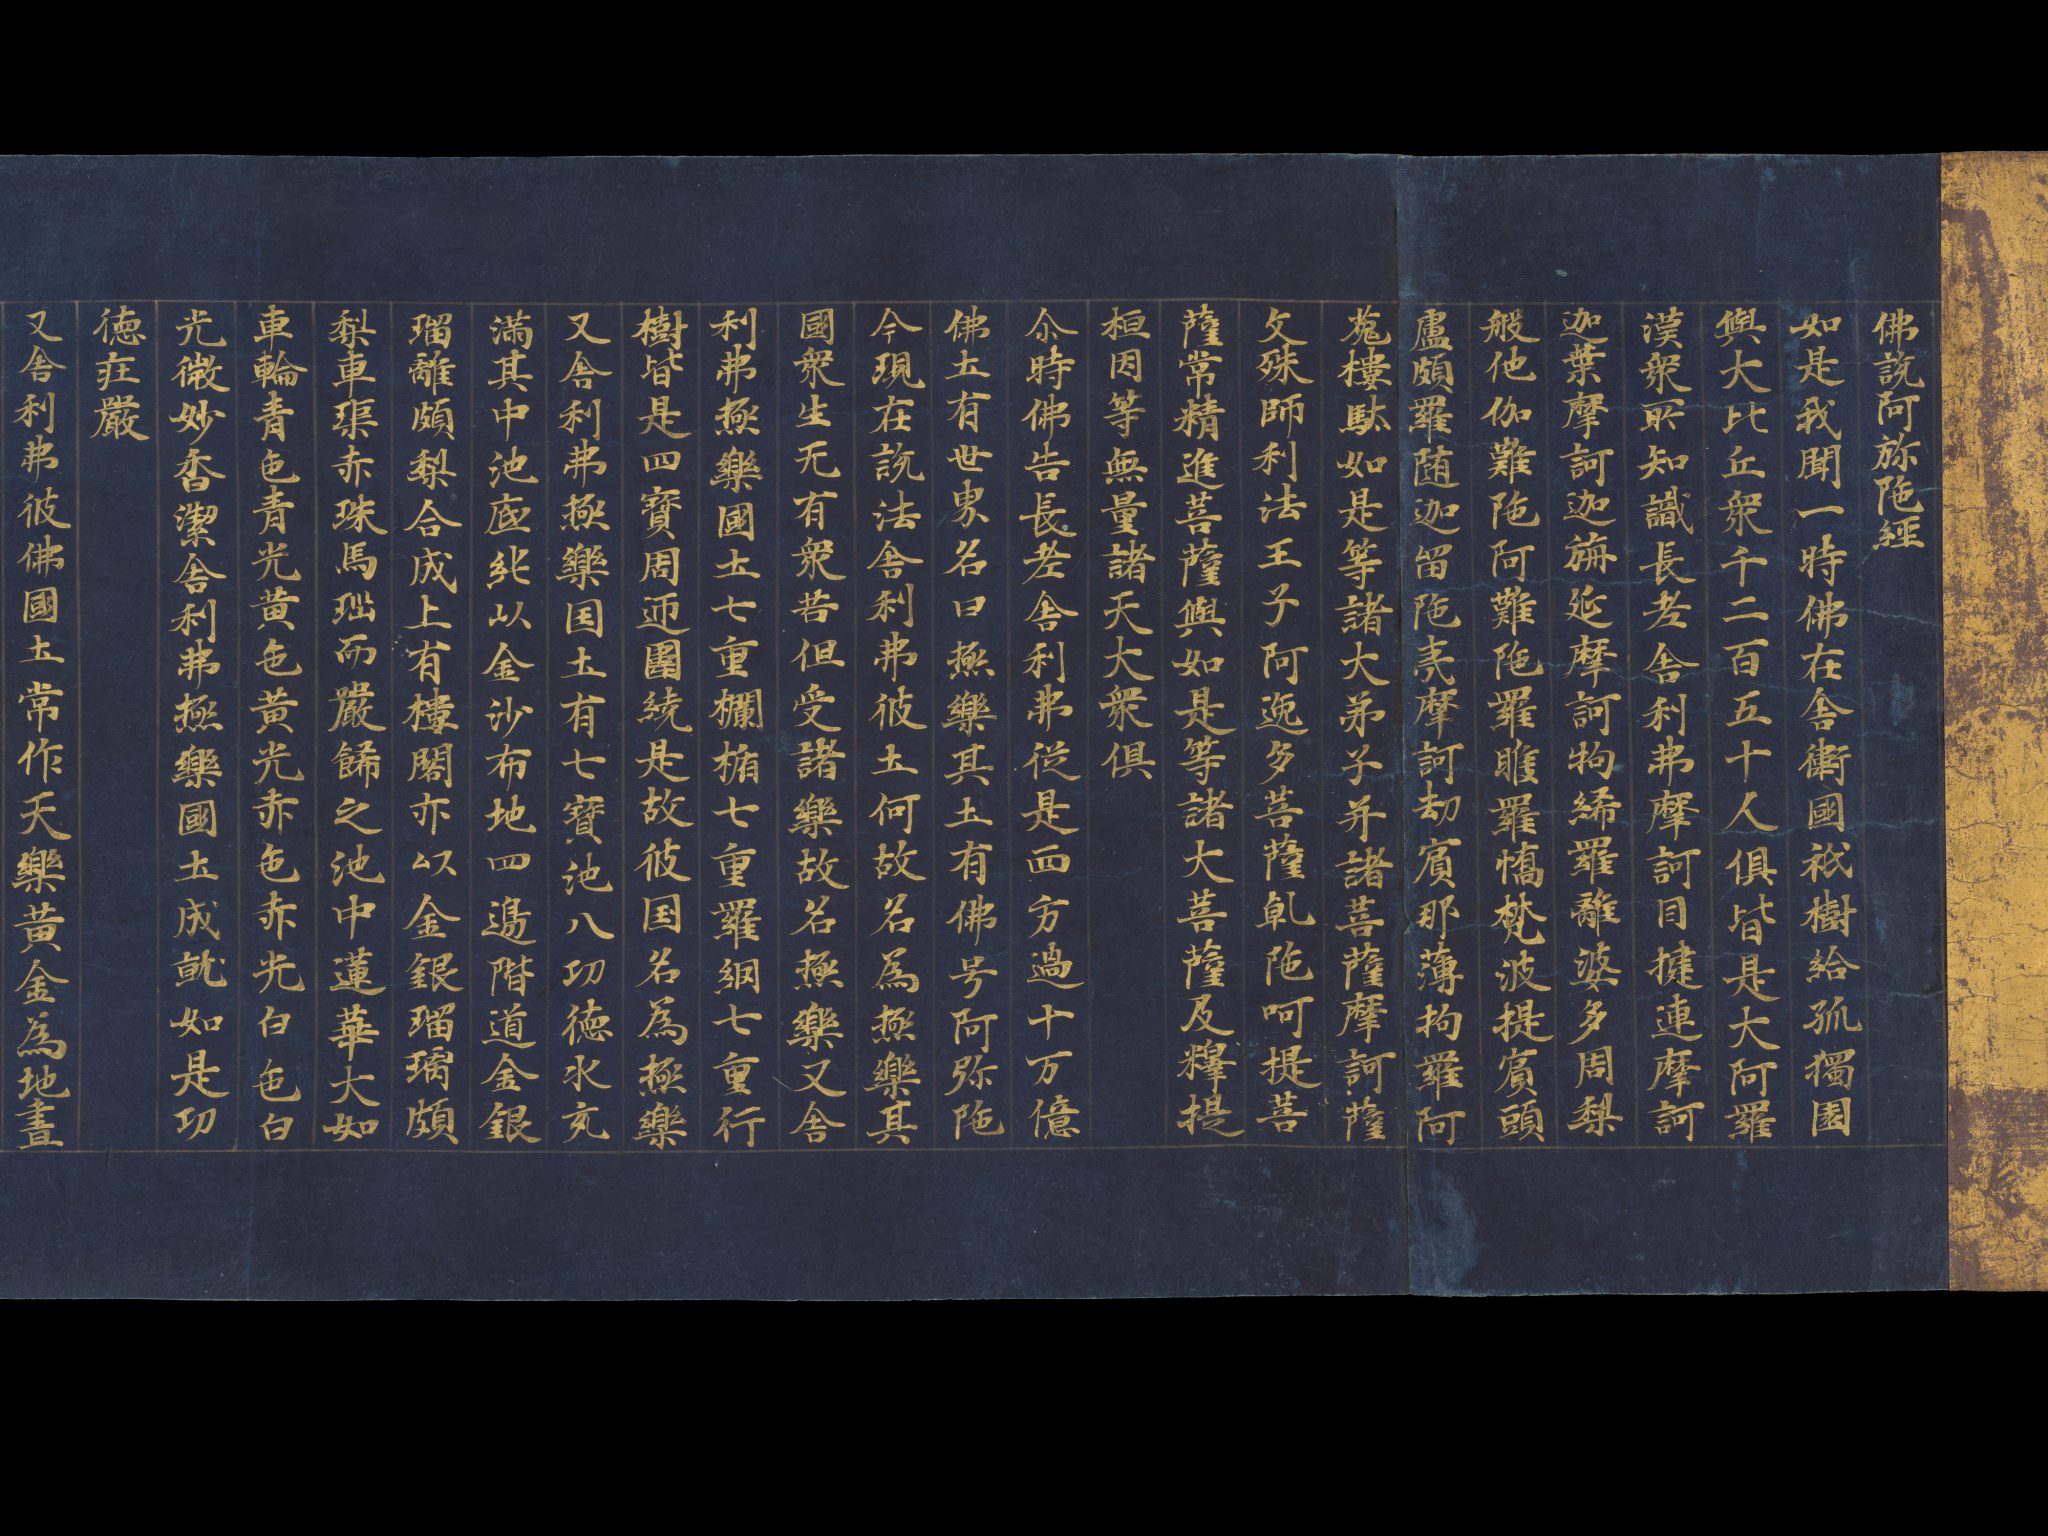 佛說阿弥陁經
如是我聞一時佛在舎衛國祇樹給孤獨園
與大比丘衆千二百五十人俱皆是大阿羅
漢衆所知識長老舎利弗摩訶目揵連摩訶
迦葉摩訶迦旃延摩訶拘絺羅離婆多周梨
槃他伽難陁阿難陁羅睺羅憍梵波提賓頭
盧頗羅随迦留陁夷摩訶劫賓那薄拘羅阿
菟樓馱如是等諸大弟子并諸菩薩摩訶薩
文殊師利法王子阿逸多菩薩乹陁呵提菩
薩常精進菩薩與如是等諸大菩薩及釋提
桓因等無量諸天大衆俱
尒時佛告長老舎利弗從是西方過十万億
佛土有世界名曰極樂其土有佛号阿弥陁
今現在說法舎利弗彼土何故名為極樂其
國衆生无有衆苦但受諸樂故名極樂又舎
利弗極樂國土七重欄楯七重羅網七重行
樹皆是四寳周迊圍繞是故彼国名為極樂
又舎利弗極樂国土有七寳池八功徳水充
滿其中池底純以金沙布地四邊階道金銀
瑠離頗梨合成上有樓閣亦以金銀瑠璃頗
梨車渠赤珠馬瑙而嚴餝之池中蓮華大如
車輪青色青光黄色黄光赤色赤光白色白
光微妙香潔舎利弗極樂國土成就如是功
徳莊嚴
又舎利弗彼佛國土常作天樂黄金為地晝